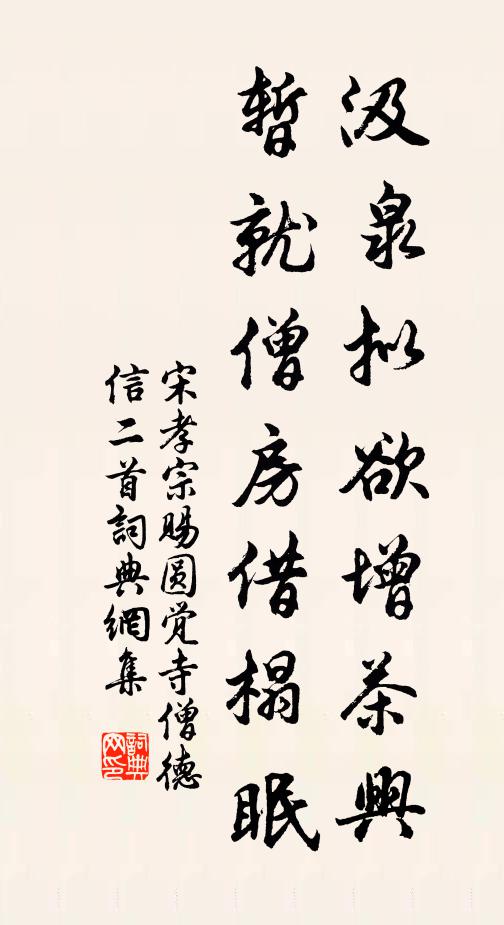 汲泉拟欲增茶興
暫就僧房借榻眠
宋孝宗賜圆觉寺僧德
信二首詞典網集
詞典
网印